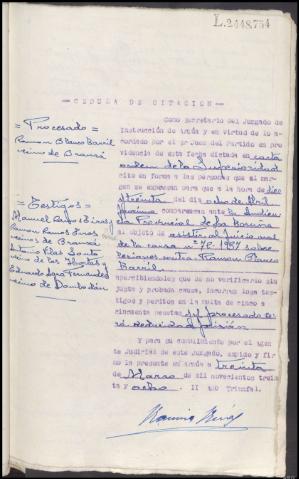 L.2448,754
—CEDULA DE CITACION—
= Procesado =
Ramon Blanco Barril
vecino de Branzá
= Testigos =
Manuel
Ramon
vecinos de Branzá
Juan
vecino de
Eduardo Fernandez
vecino de Dombodán
Como secretario del Juzgado de
Instrucción de Arzúa y en virtud de lo a-
cordado por el Sr Juez del Partido en pro-
videncia de esta fecha dictada en carta
orden de la Superioridad
cito en forma a las personas que al margen
se expresan para que a la hora de diez
y treinta del día ocho de Abril
próximo, comparezcan ante la Audien-
cia Provincial de La Coruña
al objeto de asistir al juicio oral
de la causa nº 76-1937 sobre
lesiones contra Ramon Blanco
Barril
apercibiendoles que de no verificarlo sin
justa y probada causa, incurren los tes-
tigos y peritos en la multa de cinco a
cincuenta pesetas y el procesado se-
rá reducido a prisión
Y para su cumplimiento por el agen-
te Judicial de este Juzgado, expido y fir-
mo la presente en Arzúa a treinta
de Marzo de mil novecientos trein-
ta y ocho. II Año Triunfal.